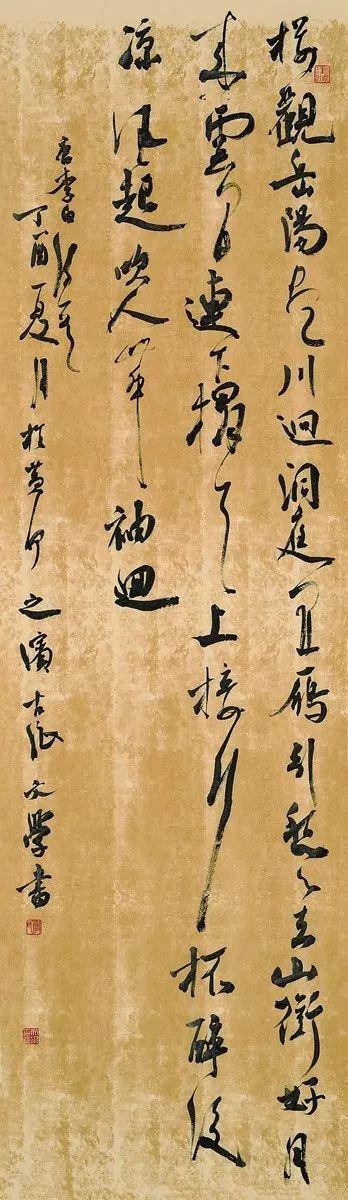 樓觀岳陽盡川迥洞庭開鴈引愁心去山銜好月
來雲間連下榻天上接行杯醉後
涼風起吹人舞袖迴
唐李白詩
丁酉夏月於黃河之濱古文學書